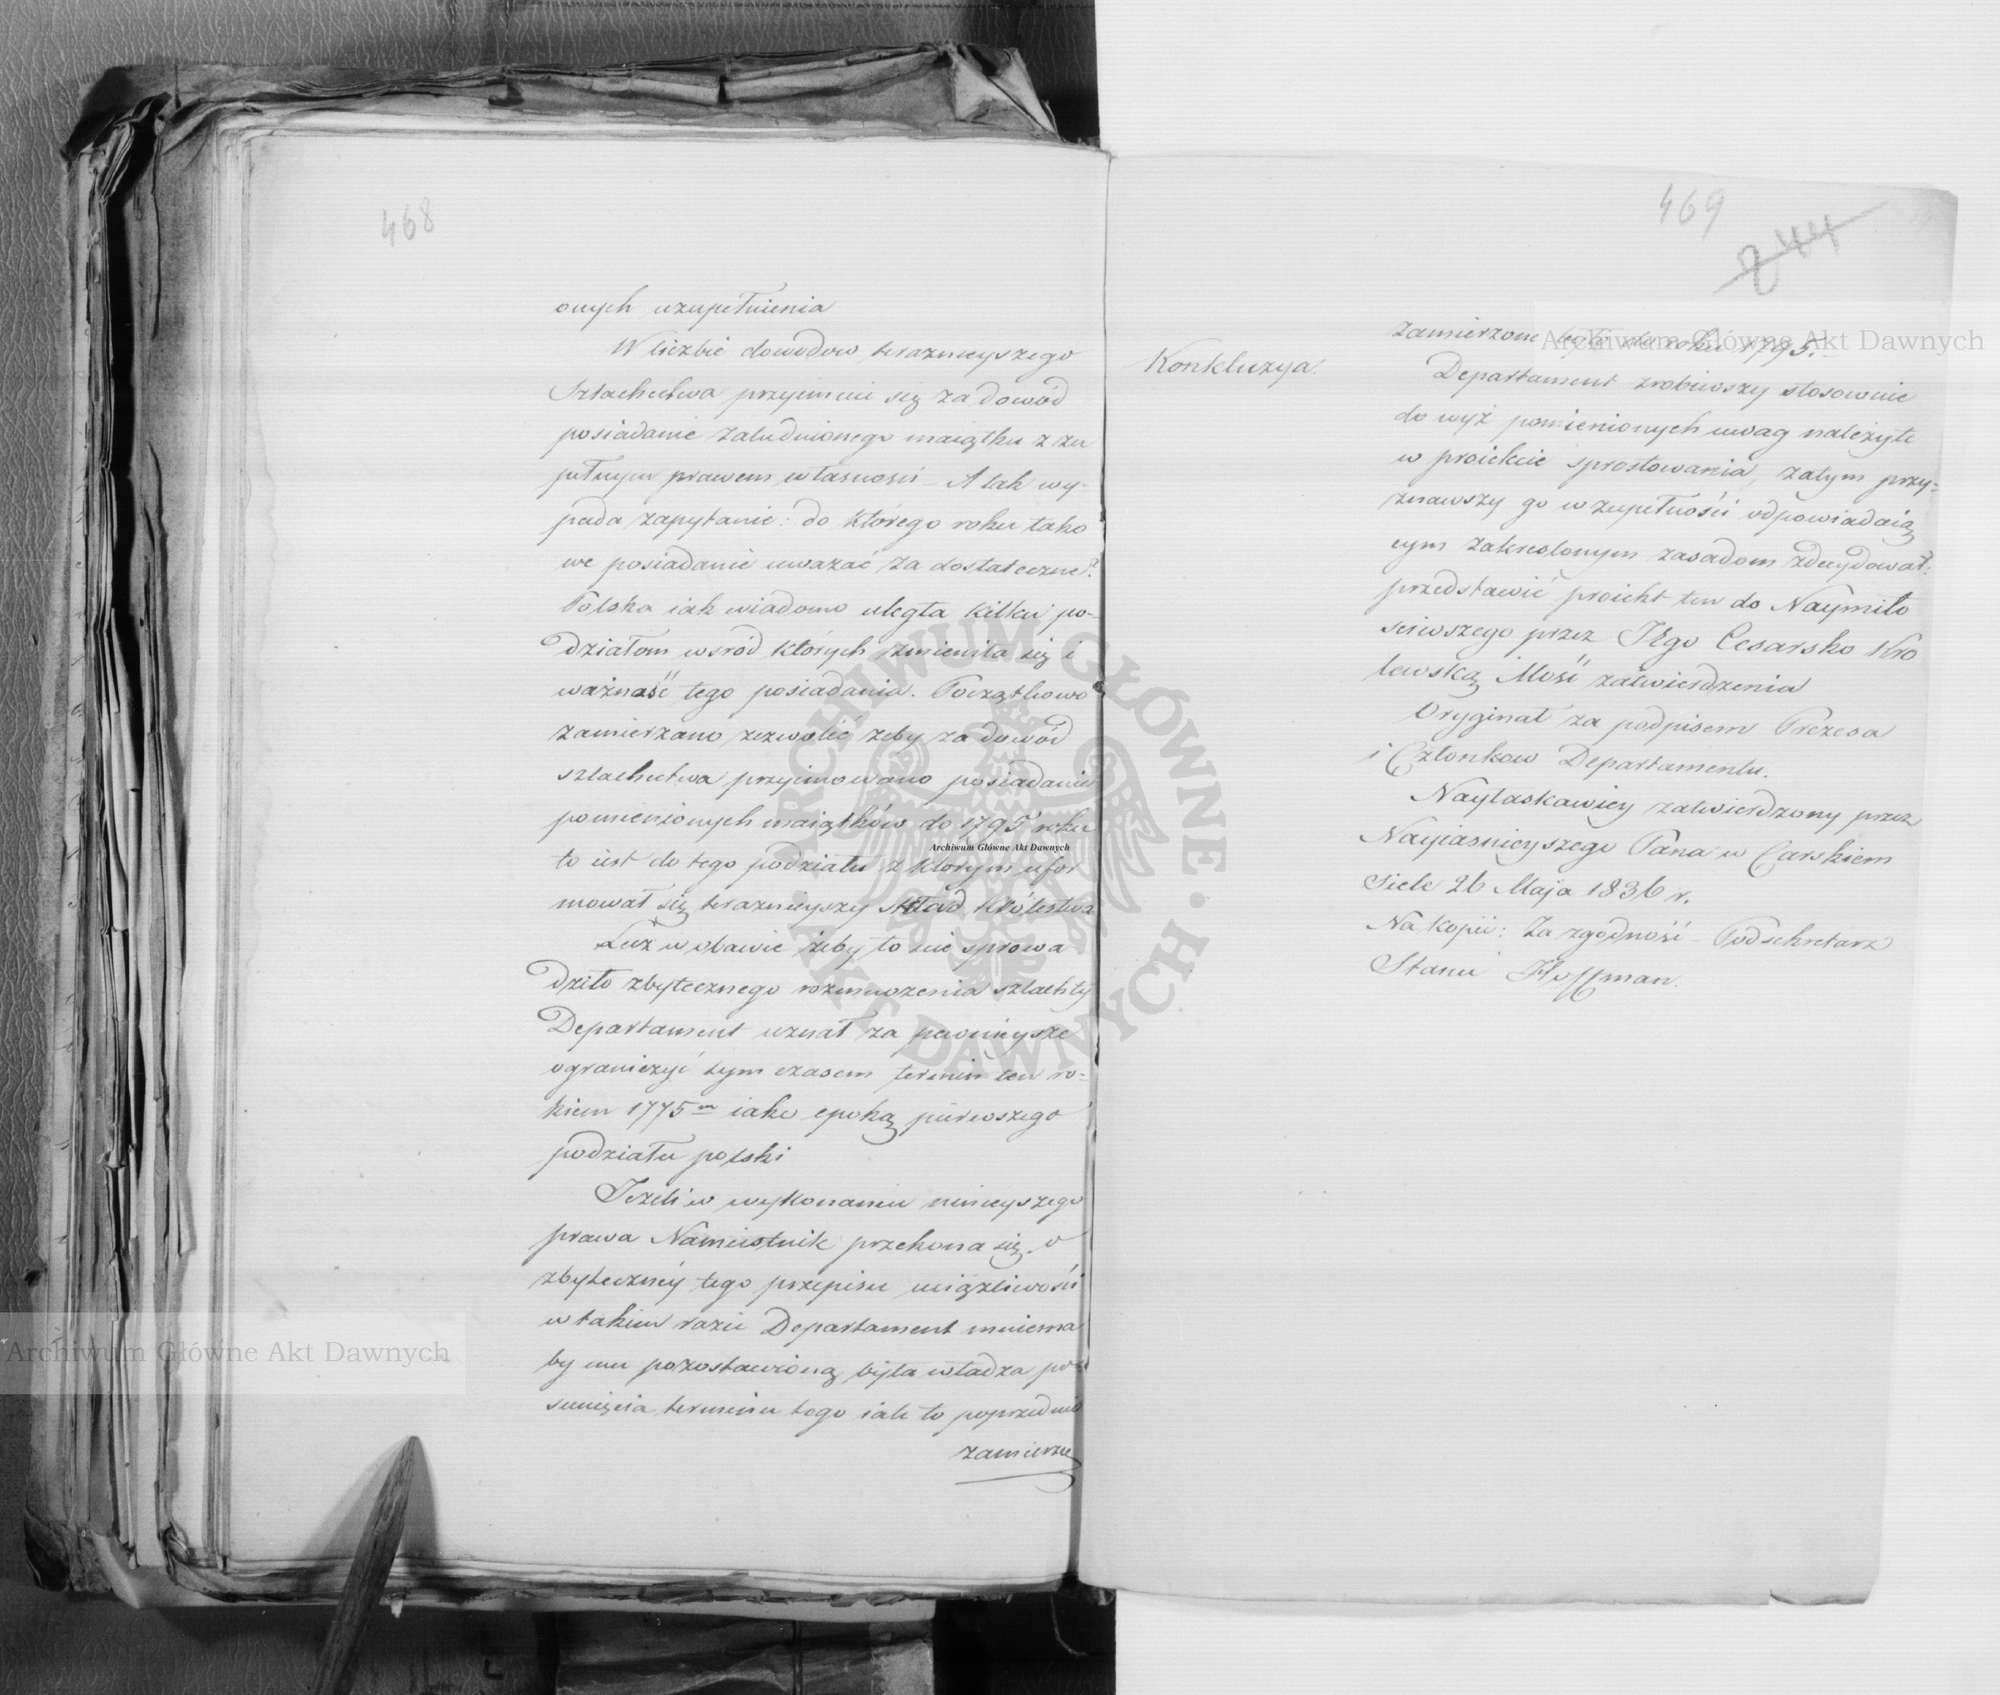 468
onych uzupełnienia
W liczbie dowodow teraznieyszego
Szlachectwa przyimuie się za dowód
posiadanie zaludnionego maiątku z zu
pełnym prawem własności – A tak wy-
pada zapytanie: do którego roku tako
we posiadanie uważać za dostateczne?
Polska iak wiadomo uległa kilku po-
działom wśród których zmieniła się i
ważność tego posiadania. Początkowo
zamierzano zezwolić żeby za dowód
szlachectwa przyimowano posiadanie
pomienionych maiątków do 1795 roku
to iest do tego podziału z którym ufor
mował się teraznieyszy skład Królestwa
Lecz w obawie żeby to nie sprowa
dziło zbytecznego rozmnożenia szlachty
Departament uznał za pewnieysze
ograniczyć tym czasem termin ten ro-
kiem 1775m iako epoką pierwszego
podziału polski
Jeżeli w wykonaniu ninieyszego
prawa Namiestnik przekona się o
zbyteczney tego przepisu uciążliwości
w takim razie Departament mniema
by mu pozostawioną była władza po-
sunięcia terminu tego iak to poprzednio
zamierzo
469
244
zamierzone było do roku 1795.
Konkluzya.
Departament zrobiwszy stosownie
do wyż pomienionych uwag należyte
w proiekcie sprostowania, zatym przy-
znawszy go w zupełności odpowiadaią
cym zakreslonym zasadom zdecydował:
przedstawić proiekt ten do Naymiło
sciwszego przez JEgo Cesarsko Kro
lewską Mość zatwierdzenia
Oryginał za podpisem Prezesa
i Członkow Departamentu.
Nayłaskawiey zatwierdzony przez
Nayiasnieyszego Pana w Carskiem
Siele 26 Maja 1836 r.
Na kopii: Za zgodność – Podsekretarz
Stanu Hoffman.
Archiwum Główne Akt Dawnych
Archiwum Główne Akt Dawnych
Archiwum Główne Akt Dawnych
ARCHIWUM GŁÓWNE AKT DAWNYCH